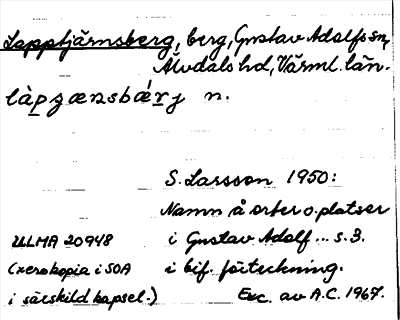 Lapptjärnsberg, berg, Gustav Adolfs sn,
Älvdals hd, Värml. län.
làpʒænsbǽrj n.
S. Larsson 1950:
Namn å orter o. platser
i Gustav Adolf ... s. 3.
i bif. förteckning.
Exc. av A.C. 1967.
ULMA 20948
(xerokopia i SOA
i särskild kapsel.)